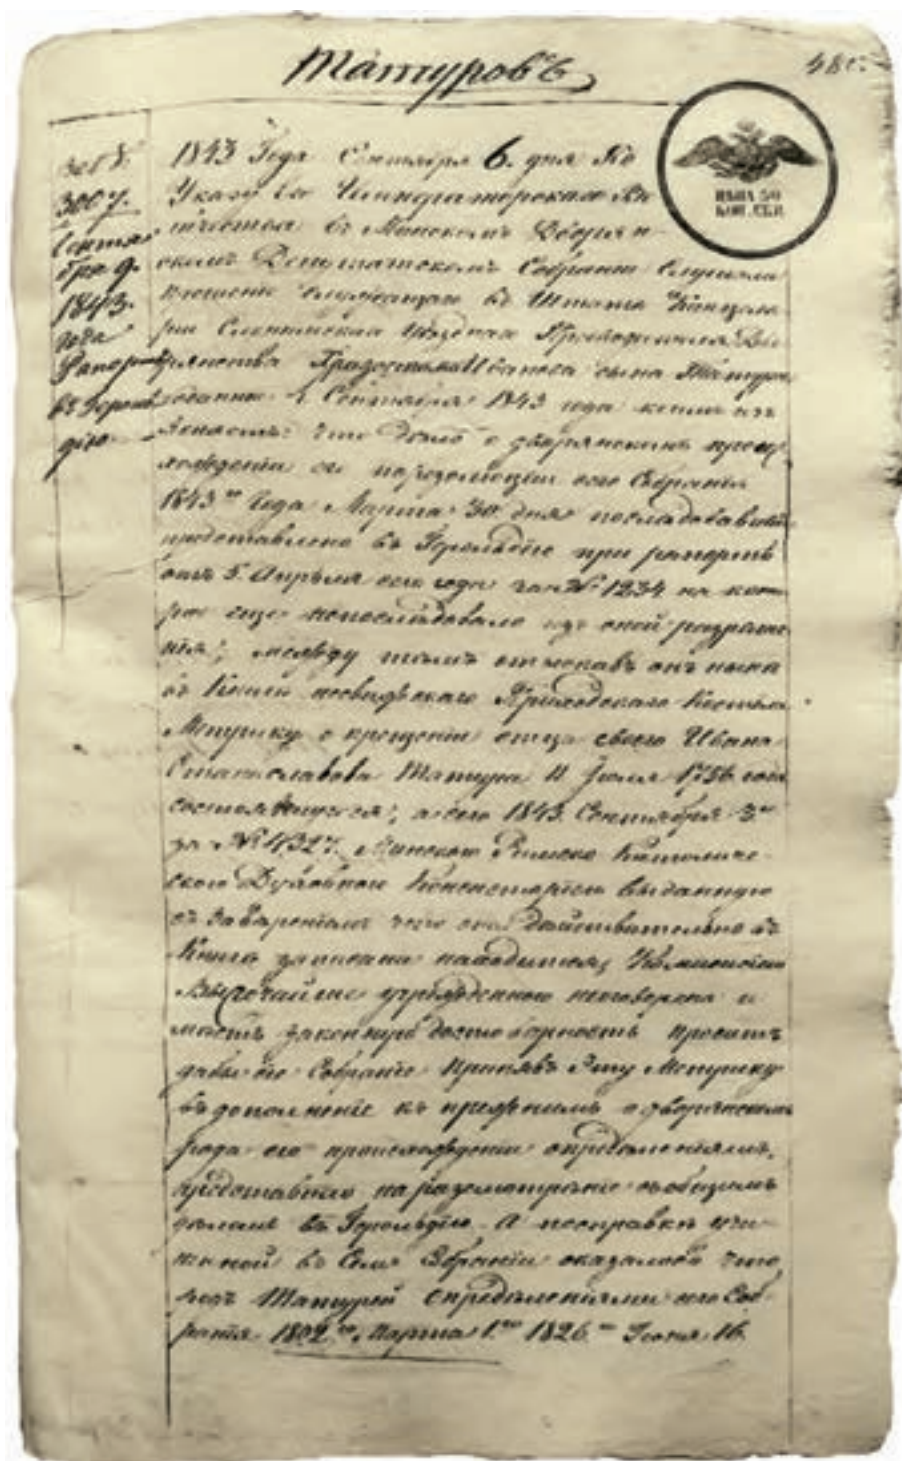 Татуровъ
480.
ЦѢНА 50
КОП. СЕР.
3007.
Сентя-
бря 9.
1843.
года
Рапортъ
въ Героль-
дію
1843 Года Сентября 6. дня По
Указу Его Императорскаго Ве-
личества въ Минскомъ Дворян-
скомъ Депутатскомъ Собраніи Слушали
прошеніе служащаго въ Штатѣ Канцеля-
ріи уѣзднаго Предводителя Дво-
рянства Иванова сына Татура
поданное Сентября 1843 года коимъ
что дѣло о дворянскомъ проис-
хожденіи его по резолюціи сего Собранія
1843го Года Марта 30 дня послѣдовавшей
представлено въ Герольдію при рапортѣ
отъ 5 Апрѣля сего года за № 1234 на кото-
рое еще непослѣдовало изъ оной разрѣше-
нія; между тѣмъ отыскавъ онъ нынѣ
въ Книгѣ Приходскаго Костела
Метрику о крещеніи отца своего Ивана
Станиславова Татура 11 Іюля года
а сего 1843. Сентября 3го
за № 4327. Минскою Римско Католиче-
скою Духовною Консисторіею выданную
съ завѣреніемъ что она дѣйствительно въ
Книгѣ записана находится,
Высочайше учрежденною и
имѣетъ законную достовѣрность проситъ
дабы сіе Собраніе принявъ эту Метрику
въ дополненіе къ прежнимъ о дворянскомъ
рода его происхожденіи опредѣленіямъ,
представило на разсмотрѣніе съ общимъ
дѣломъ въ Герольдію. А по справкѣ учи-
ненной въ Семъ Собраніи оказалось что
родъ Татуровъ Опредѣленіями сего Соб-
ранія 1802го Марта 1го 1826го Іюня 16.